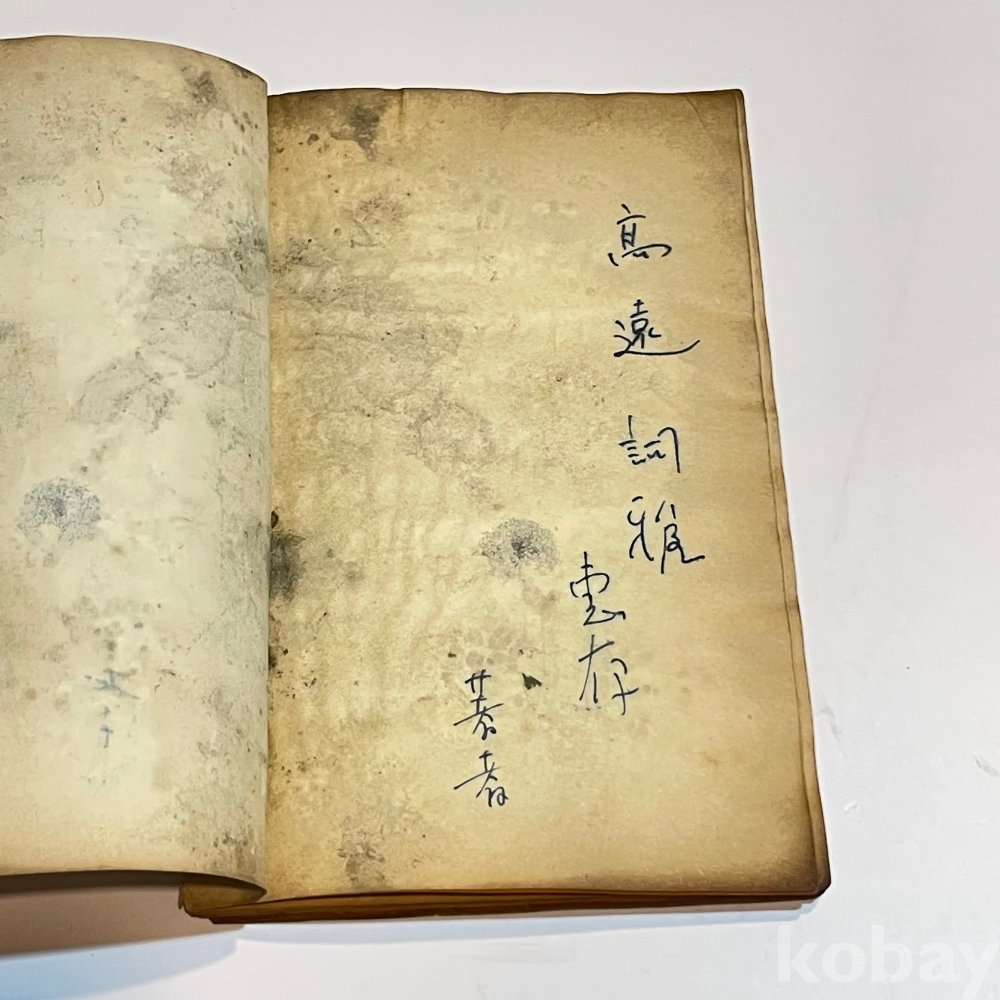 高遠詞雅
惠存
著者
kobay